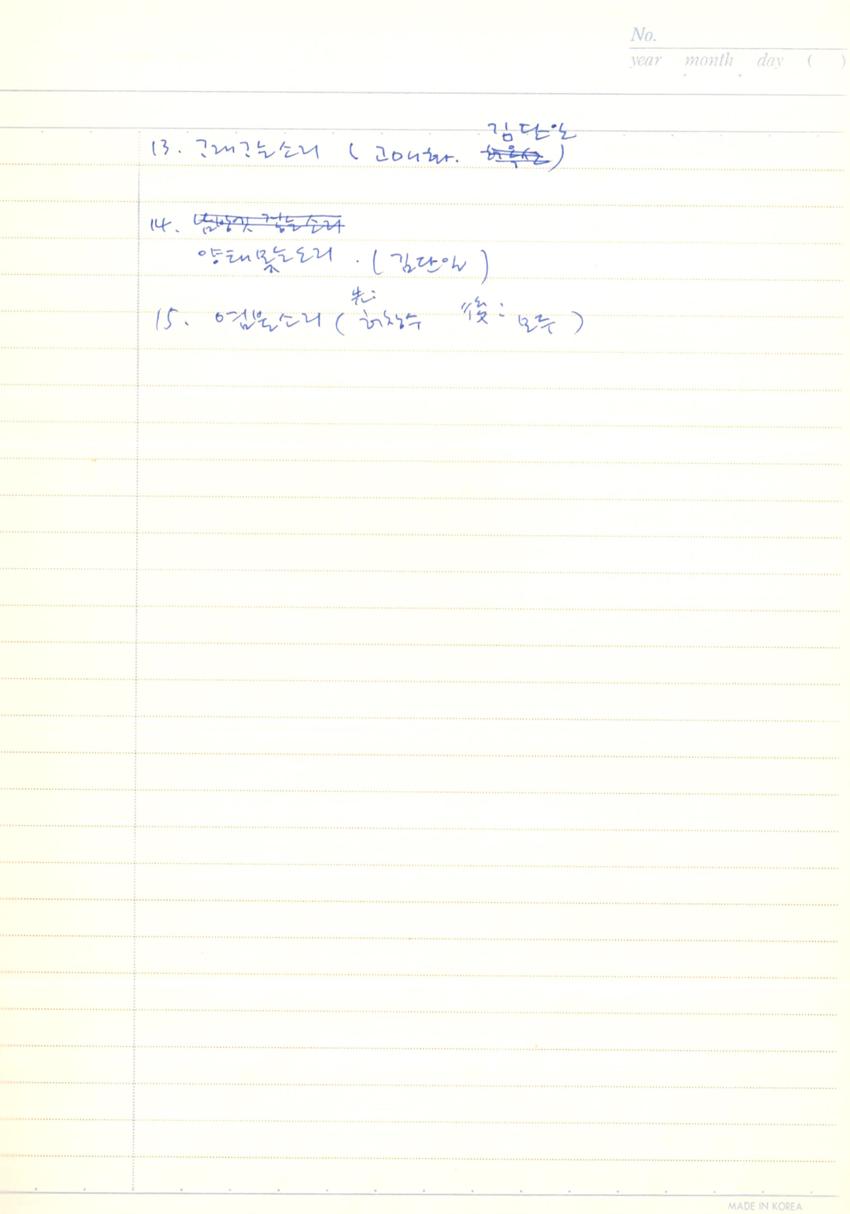 No.
year month day ( )
김단일
13. ᄀ래ᄀ는소리 ( 고애화. )
14.
양태뭇는소리 . ( 김단일 )
先:
15. 염불소리 ( 허창수 後: 모두 )
MADE IN KOREA